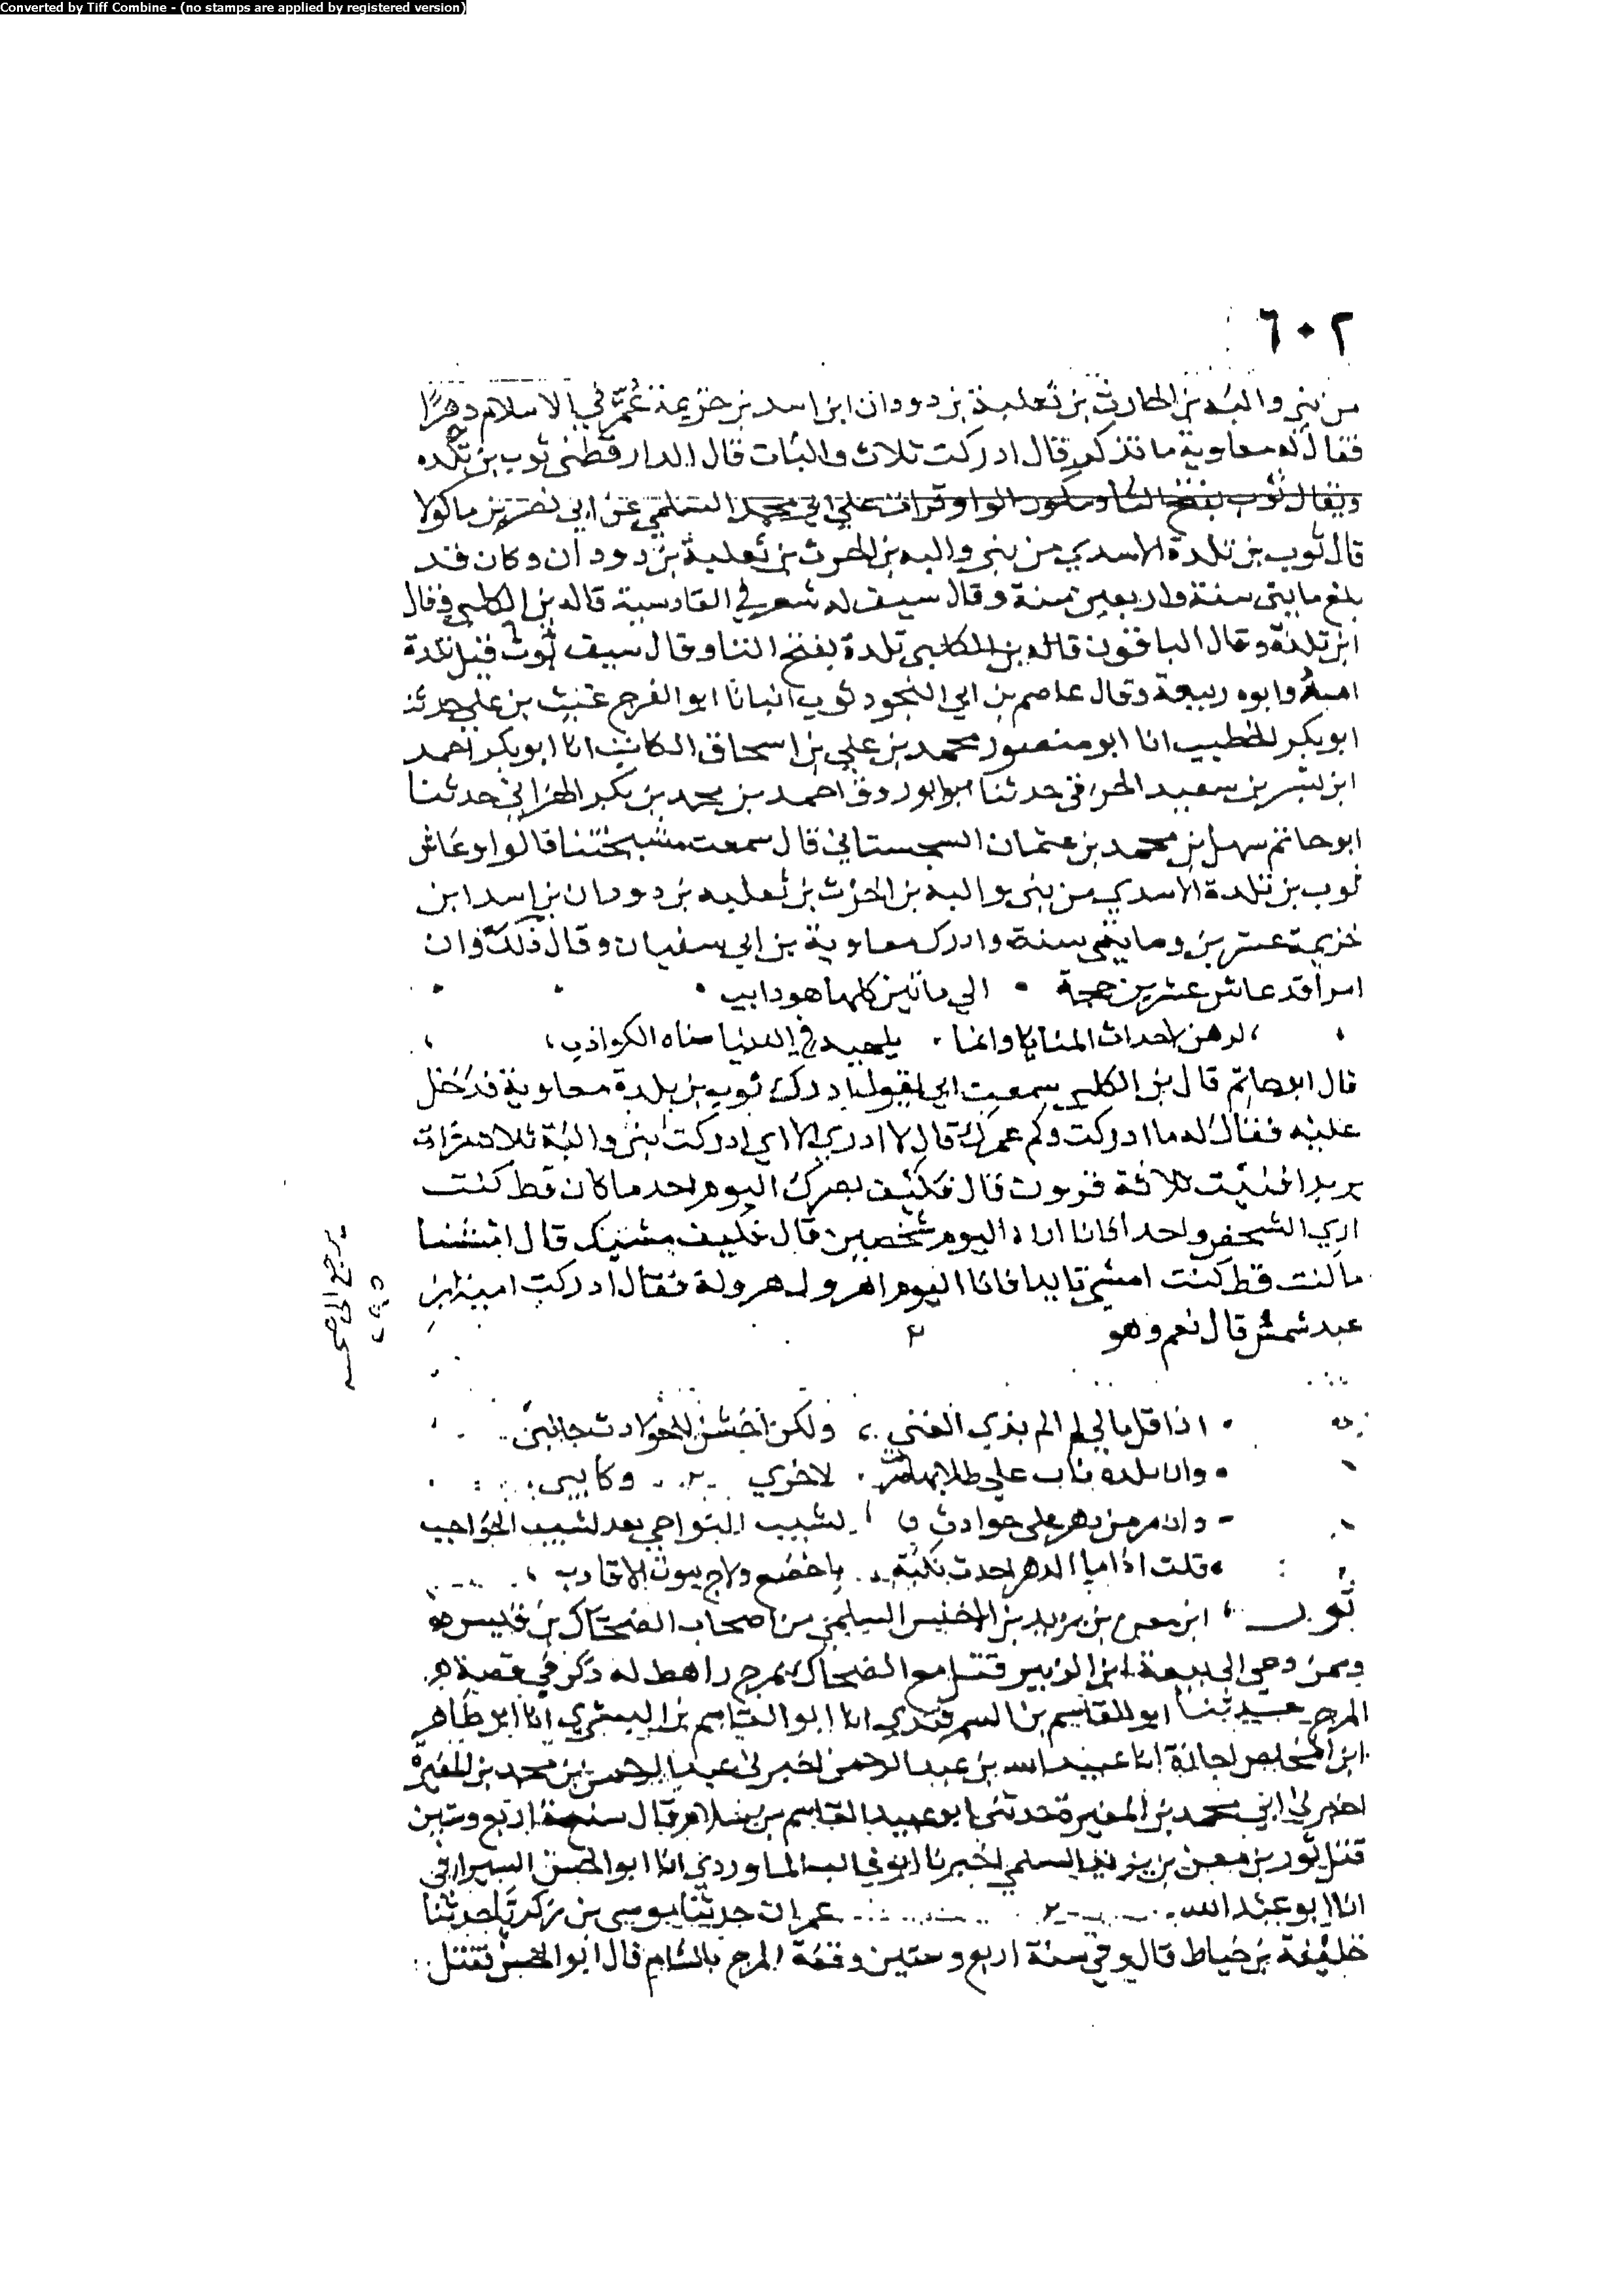 Converted by Tiff Combine - (no stamps are applied by registered version)
٦٠٢
من بني والبه بن الحارث بن ثعلبة بن دودان ابن اسد بن خزيمة عُمّر في الاسلام دهرًا
فقال له معاوية ما تذكر قال ادركت ثلاث والبات قال الدارقطني ثوب بن تلده
ويقال ثوب بفتح الثا وسكون الواو قرات علي ابي محمد السلمي عن ابي نصر بن ماكولا
قال ثوب بن تلدة الاسدي من بني والبه بن الحرث بن ثعلبة بن دودان وكان قد
بلغ مايتى سنة واربعين سنة وقال سيف له شعر في القادسية قاله بن الكلبي وقال
ابن تلدة وقال الباقون قاله بن الكلبي تلدة بفتح التا وقال سيف ثوب قيل تلدة
امهُ وابوه ربيعة وقال عاصم بن ابي النجود ثوب انبانا ابو الفرج غيث بن علي حدثنا
ابو بكر الخطيب انا ابو منصور محمد بن علي بن اسحاق الكاتب انا ابو بكر احمد
ابن بشر بن سعيد الخرقى حدثنا ابو روق احمد بن محمد بن بكر الهزاني حدثنا
ابو حاتم سهل بن محمد بن عثمان السجستاني قال سمعت مشيختنا قالوا وعاش
ثوب بن تلدة الاسدي من بني والبه بن الحرث بن ثعلبه بن دودان بن اسد ابن
خزيمة عشرين ومايتى سنة وادرك معاوية بن ابي سفيان وقال ذلك وان
امرأ قد عاش عشرين حجة • الي مائتين كلها هو دايب •
لرهن لاحداث المنايا وانما • يلهيه في الدنيا مناه الكواذب
قال ابو حاتم قال بن الكلبي سمعت ابي يقول ادرك ثوب بن تلدة معاوية فدخل
عليه فقال له ما ادركت وكم عمرك قال لا ادري الا اني ادركت بني والبة ثلاث مرات
يريد افنيت ثلاثة قرون قال فكيف بصرك اليوم احد ما كان قط كنت
اري الشخص واحدا فانا اراه اليوم شخصين قال فكيف مشيك قال امشىا
ما كنت قط كنت امشي تايدا فانا اليوم اهرول هرولة فقال ادركت امية بن
عبد شمس قال نعم وهو ٢
يرجع الى صحـ
٥٩٢
• اذا قل مالي لم الم بذي الغني ، ولكن اخشن للحوادث جانبى
• وان بلدة ناب علي طلابها لاخري وكايبى
- وان مر من دهر علي حوادث لشيب النواحي بعد لشيب الحواجب
• قلت اذا ما الدهر احدث نكبة باخضع ولاج بيوت الاقارب
ثور ابن معن بن يزيد بن الاخنس السلمي من اصحاب الضحاك بن قيس هو
وممن دعي الى بيعة ابن الزبير قتل مع الضحاك بمرج راهط له ذكر في قصة
المرج حدثنا ابو القاسم بن السمرقندي انا ابو القاسم بن البسري انا ابو طاهر
ابن المخلص اجازة انا عبيد الله بن عبد الرحمن اخبرني عبد الرحمن بن محمد بن المغيرة
اخبرني ابي محمد بن المغيرة حدثني ابو عبيد القاسم بن سلام قال سنة اربع وستين
قتل ثور بن معن بن يزيد السلمي اخبرنا ابو غالب الماوردي انا ابو الحسن السيرافي
انا ابو عبد الله ٢ عمران حدثنا موسى بن زكريا حدثنا
خليفة بن خياط قال وفي سنة اربع وستين وقعة المرج بالشام قال ابو الحسن فقتل